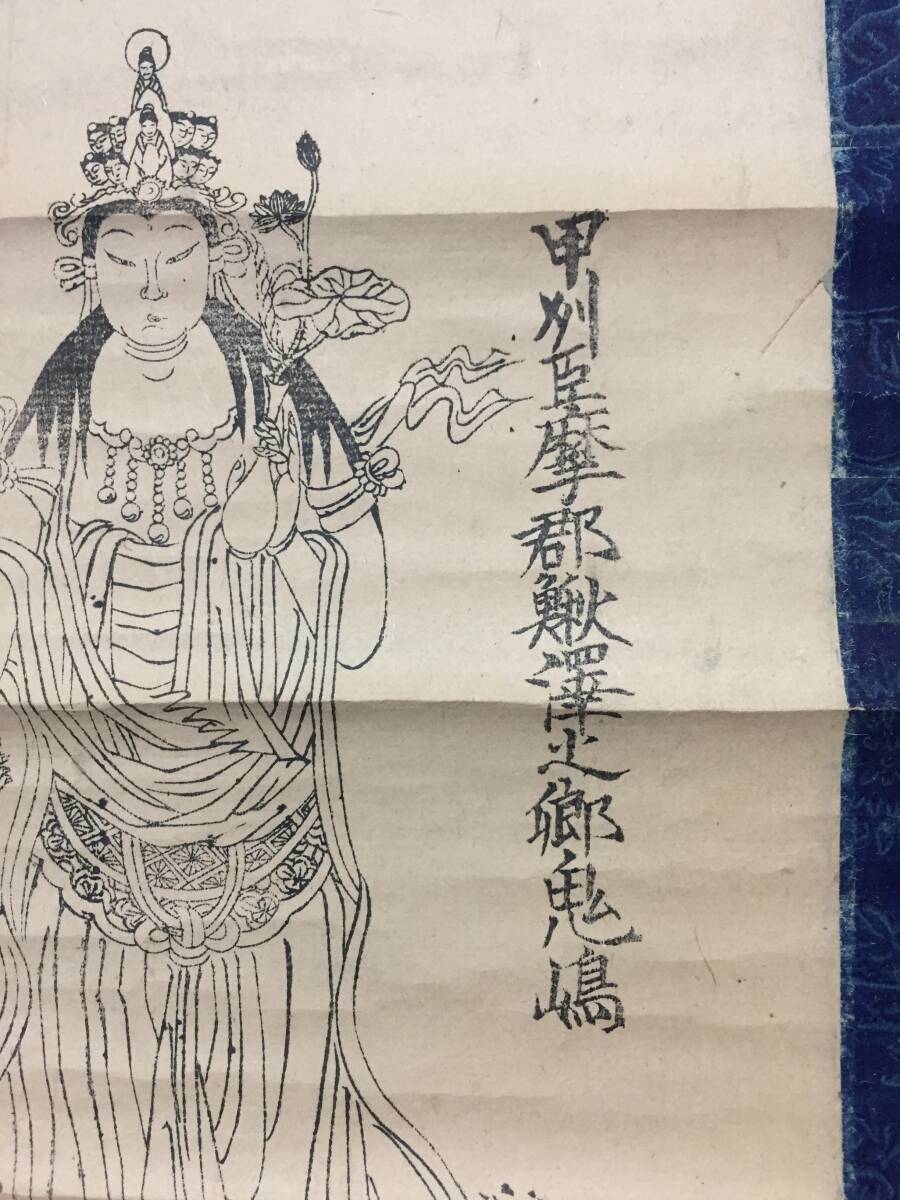 甲州臣摩郡鰍澤之郷鬼嶋